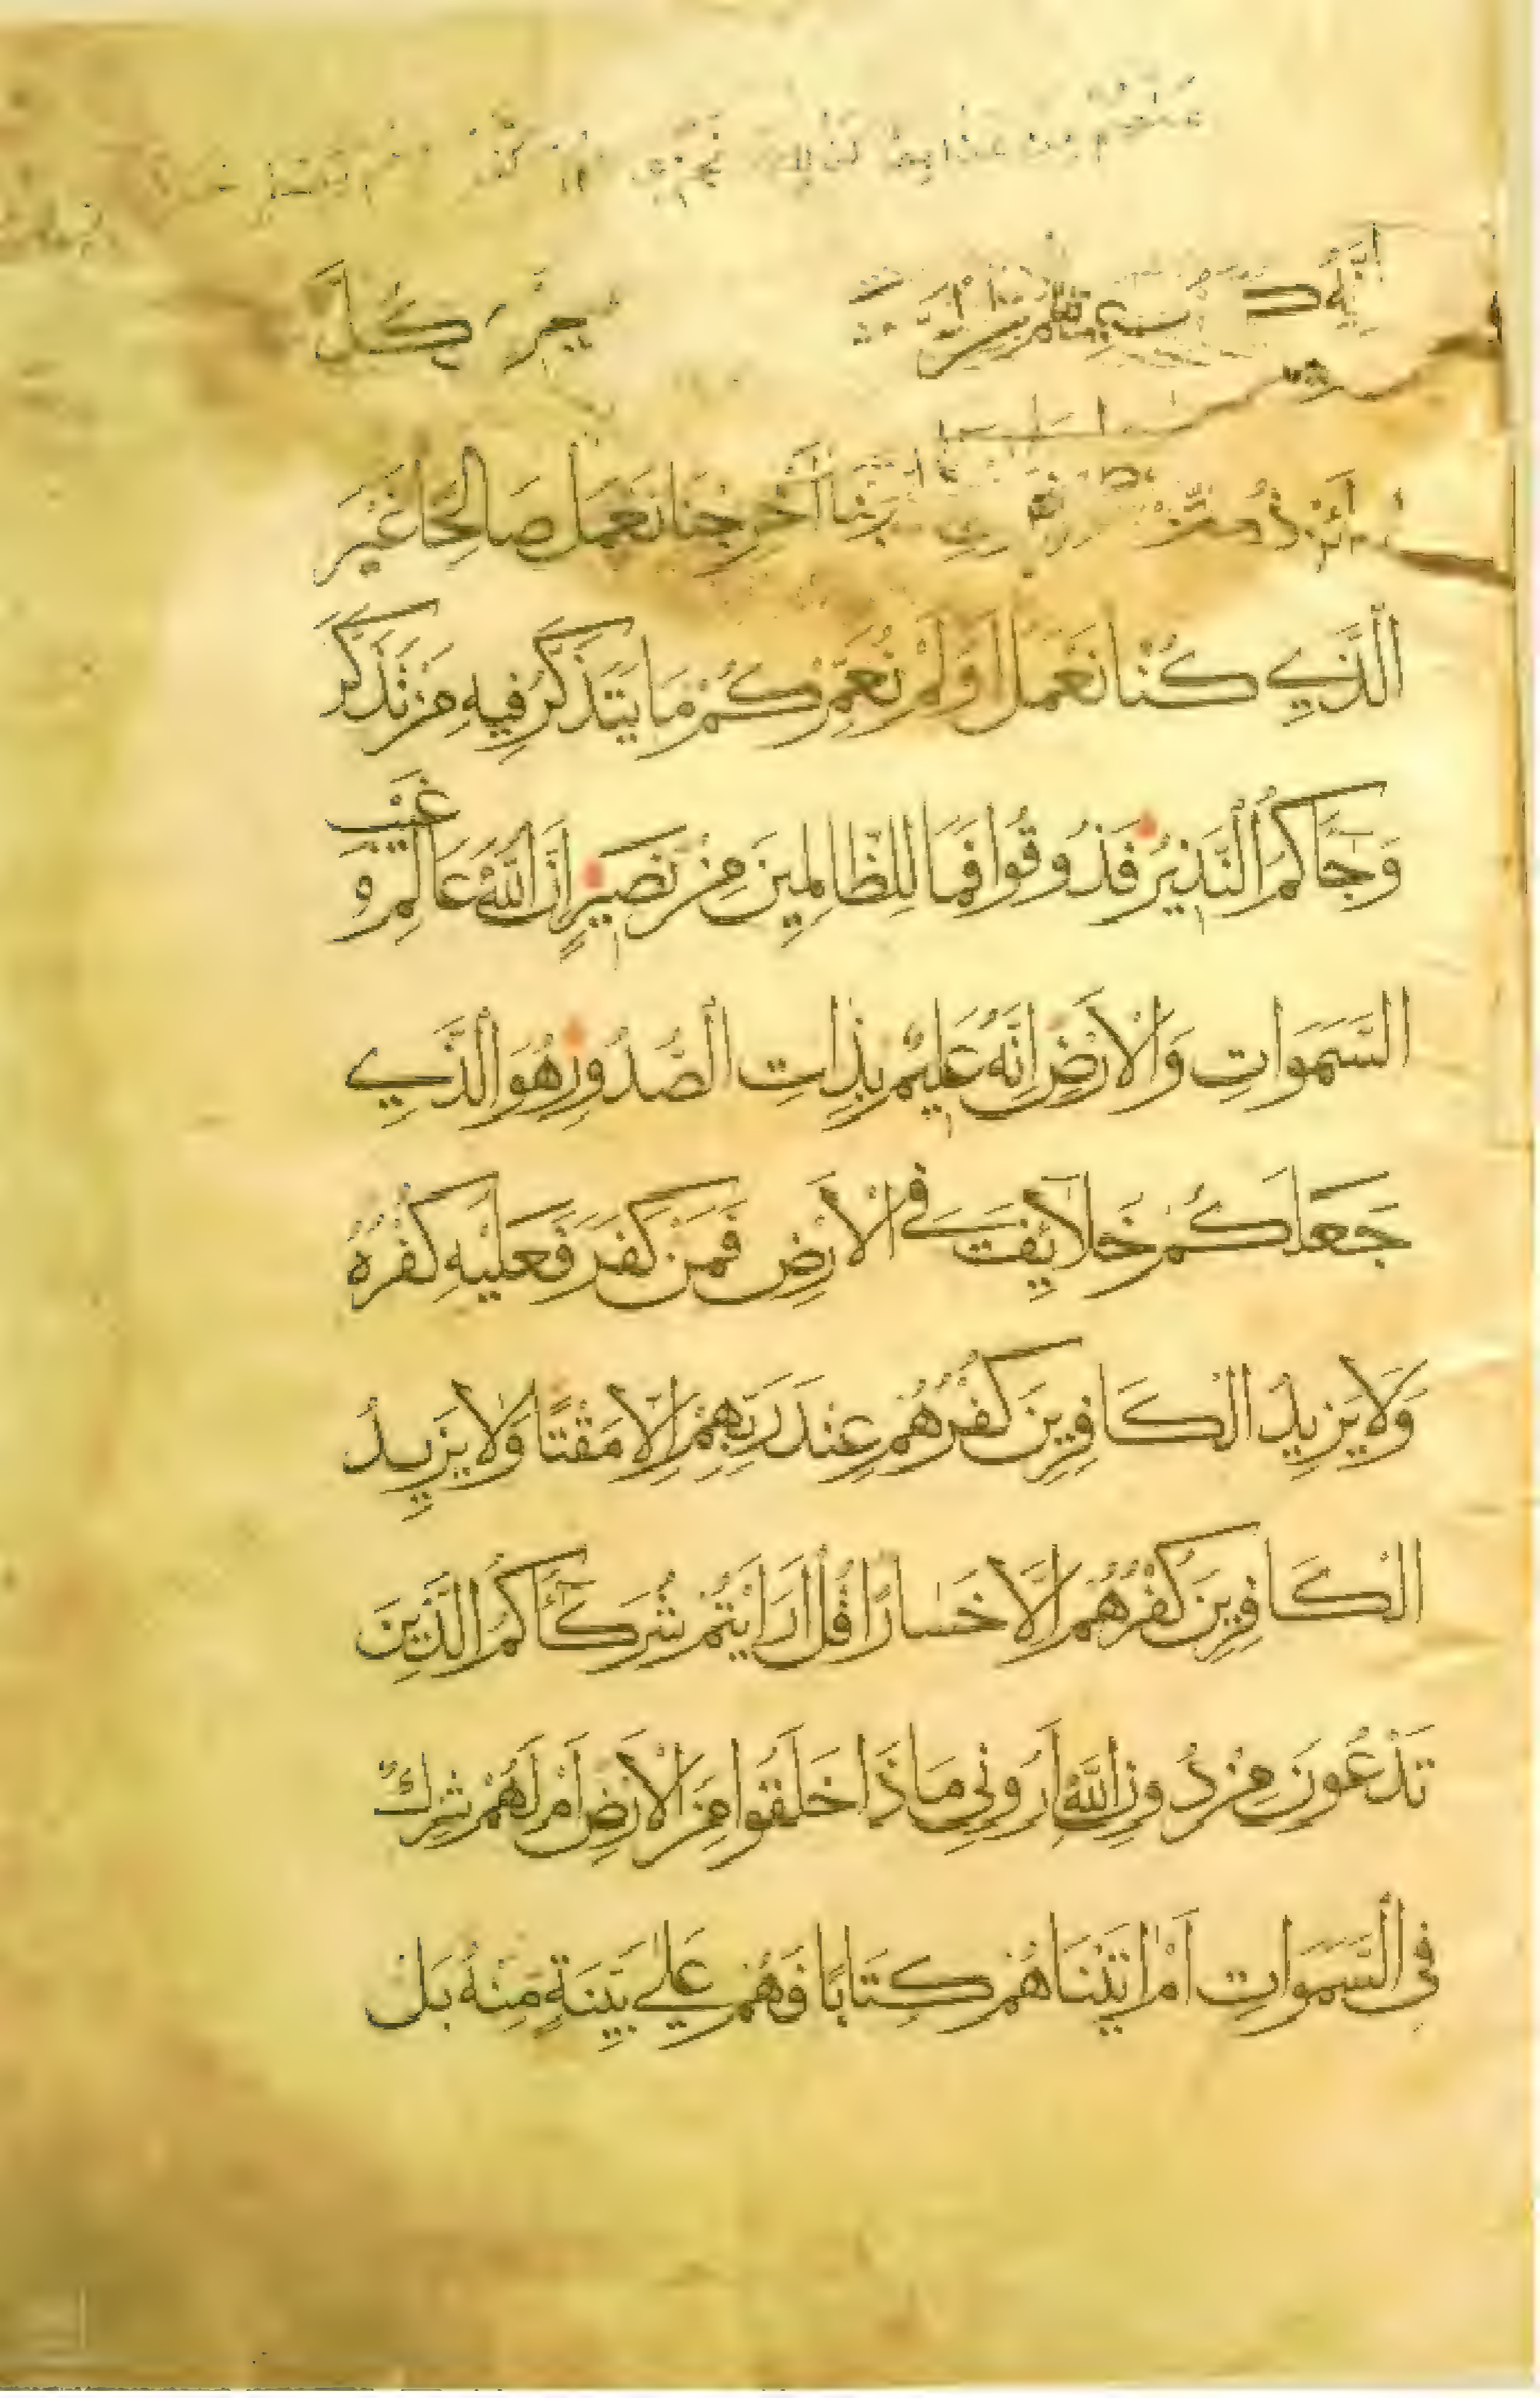 عنهم من عذابها كذلك نجزي
نجزي كل
ربنا أخرجنا نعمل صالحا غير
الَّذِي كُنَّا نَعْمَلُ أَوَلَمْ نُعَمِّرْكُمْ مَا يَتَذَكَّرُ فِيهِ مَنْ تَذَكَّرَ
وَجَاكُمُ النَّذِيرُ فَذُوقُوا فَمَا لِلظَّالِمِينَ مِنْ نَصِيرٍ إِنَّ اللَّهَ عَالِمُ غَيْبِ و
السَّمَوَاتِ وَالْأَرْضِ إِنَّهُ عَلِيمٌ بِذَاتِ الصُّدُورِ هُوَ الَّذِي
جَعَلَكُمْ خَلَائِفَ فِي الْأَرْضِ فَمَنْ كَفَرَ فَعَلَيْهِ كُفْرُهُ
وَلَا يَزِيدُ الْكَافِرِينَ كُفْرُهُمْ عِنْدَ رَبِّهِمْ إِلَّا مَقْتًا وَلَا يَزِيدُ
الْكَافِرِينَ كُفْرُهُمْ إِلَّا خَسَارًا قُلْ أَرَأَيْتُمْ شُرَكَآءَكُمُ الَّذِينَ
تَدْعُونَ مِنْ دُونِ اللَّهِ أَرُونِي مَاذَا خَلَقُوا مِنَ الْأَرْضِ أَمْ لَهُمْ شِرْكٌ
فِي السَّمَوَاتِ أَمْ اٰتَيْنَاهُمْ كِتَابًا فَهُمْ عَلَى بَيِّنَةٍ مِنْهُ بَلْ